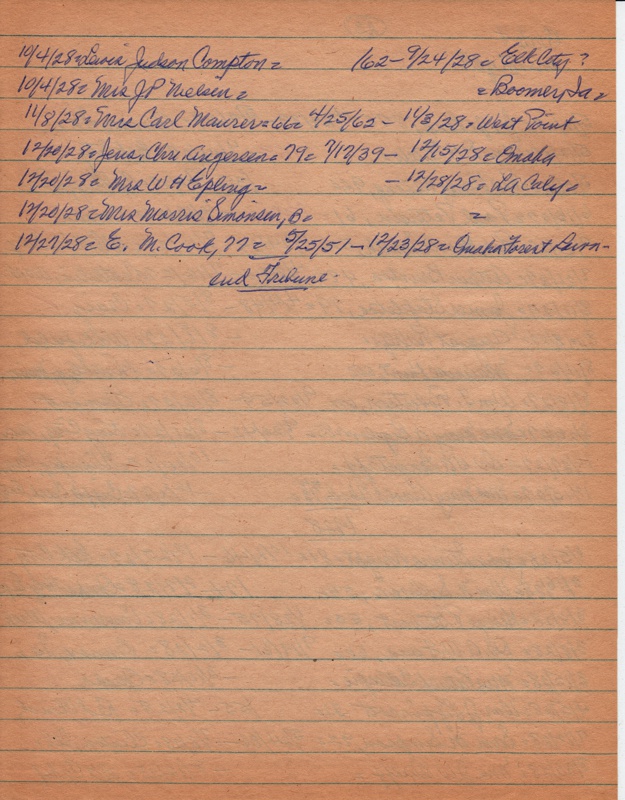 10/4/28 = Lewis Judson Compton = /62 - 9/24/28 = Elk City ?
10/4/28 = Mrs J.P. Nielsen = = Boomer, Ia =
11/8/28 = Mrs Carl Maurer = 66 = 4/25/62 - 11/3/28 = West Point
12/20/28 = Jens. Chr. Angersen = 79 = 7/17/39 - 12/15/28 = Omaha
12/20/28 = Mrs W H Epling = - 12/28/28 = LA Caly =
12/20/28 = Mrs Morris Simonsen, B = =
12/27/28 = E. M. Cook, 77 = 5/25/51 - 12/23/28 = Omaha Forest Lawn -
end Tribune.